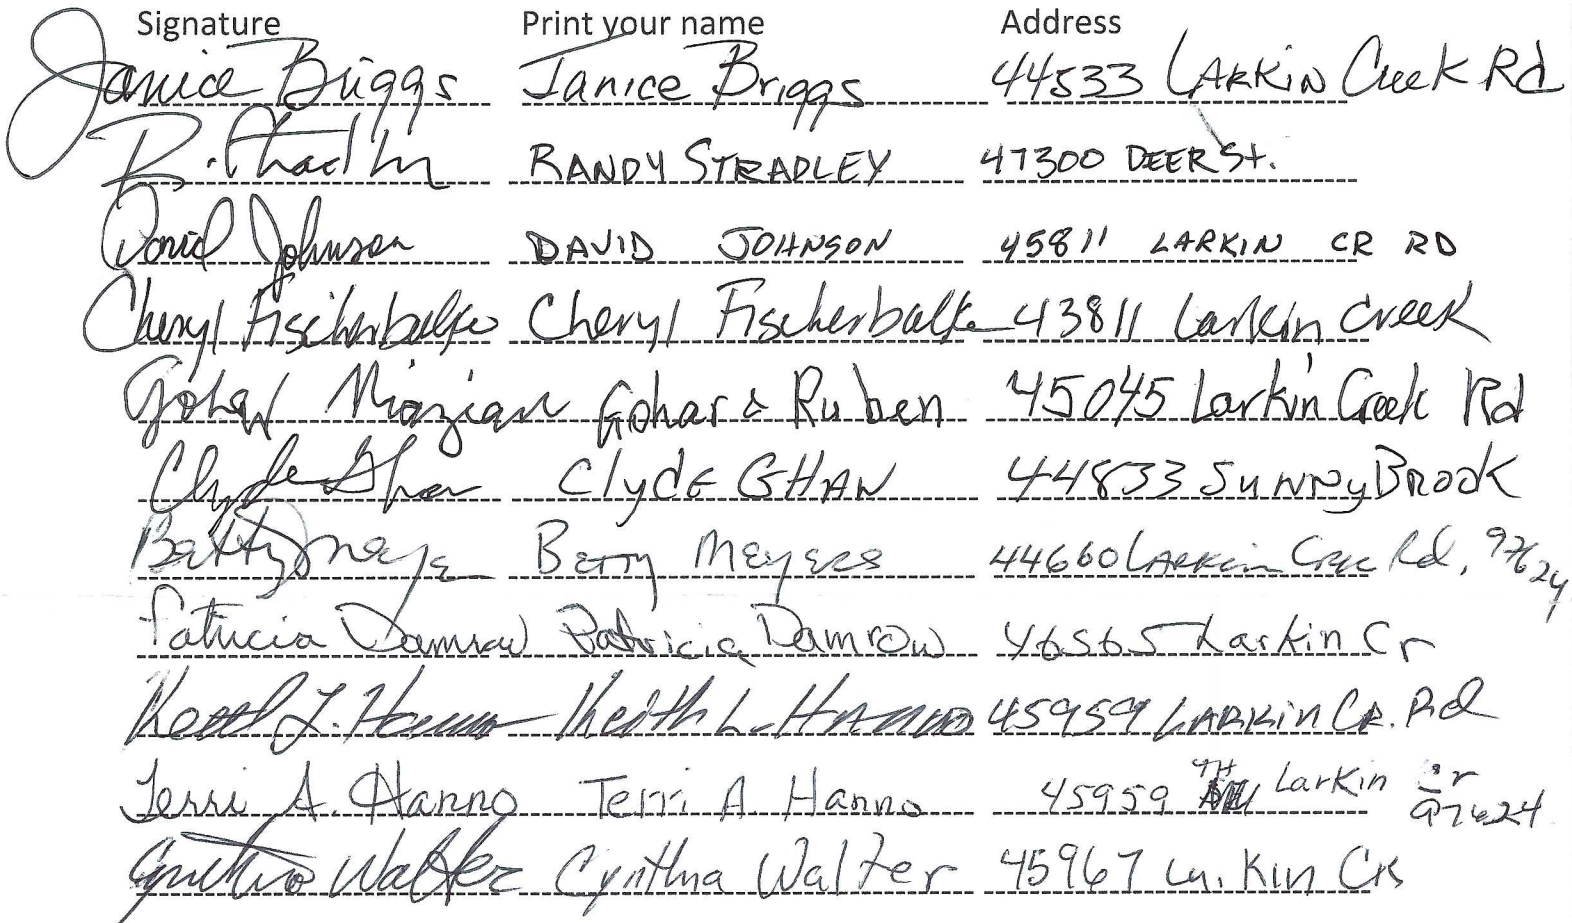 Signature Print your name Address
Janice Briggs Janice Briggs 44533 LARKIN Creek Rd
R. Stradley RANDY STRADLEY 47300 DEER St.
David Johnson DAVID JOHNSON 45811 LARKIN CR RD
Cheryl Fischerbalke Cheryl Fischerbalke 43811 Larkin Creek
Gohar Niazian Gohar & Ruben 45045 Larkin Creek Rd
Clyde Ghan Clyde GHAN 44833 SUNNY BROOK
Betty Meyers 44660 LARKin Cree Rd, 97624
Patricia Damrow Patricia Damrow 46565 Larkin Cr
Keith L. Hanno Keith L. HANNO 45959 LARKIN CR. Rd
Terri A. Hanno Terri A. Hanno 45959 Larkin Cr 97624
Cynthia Walter Cynthia Walter 45967 Larkin Crk